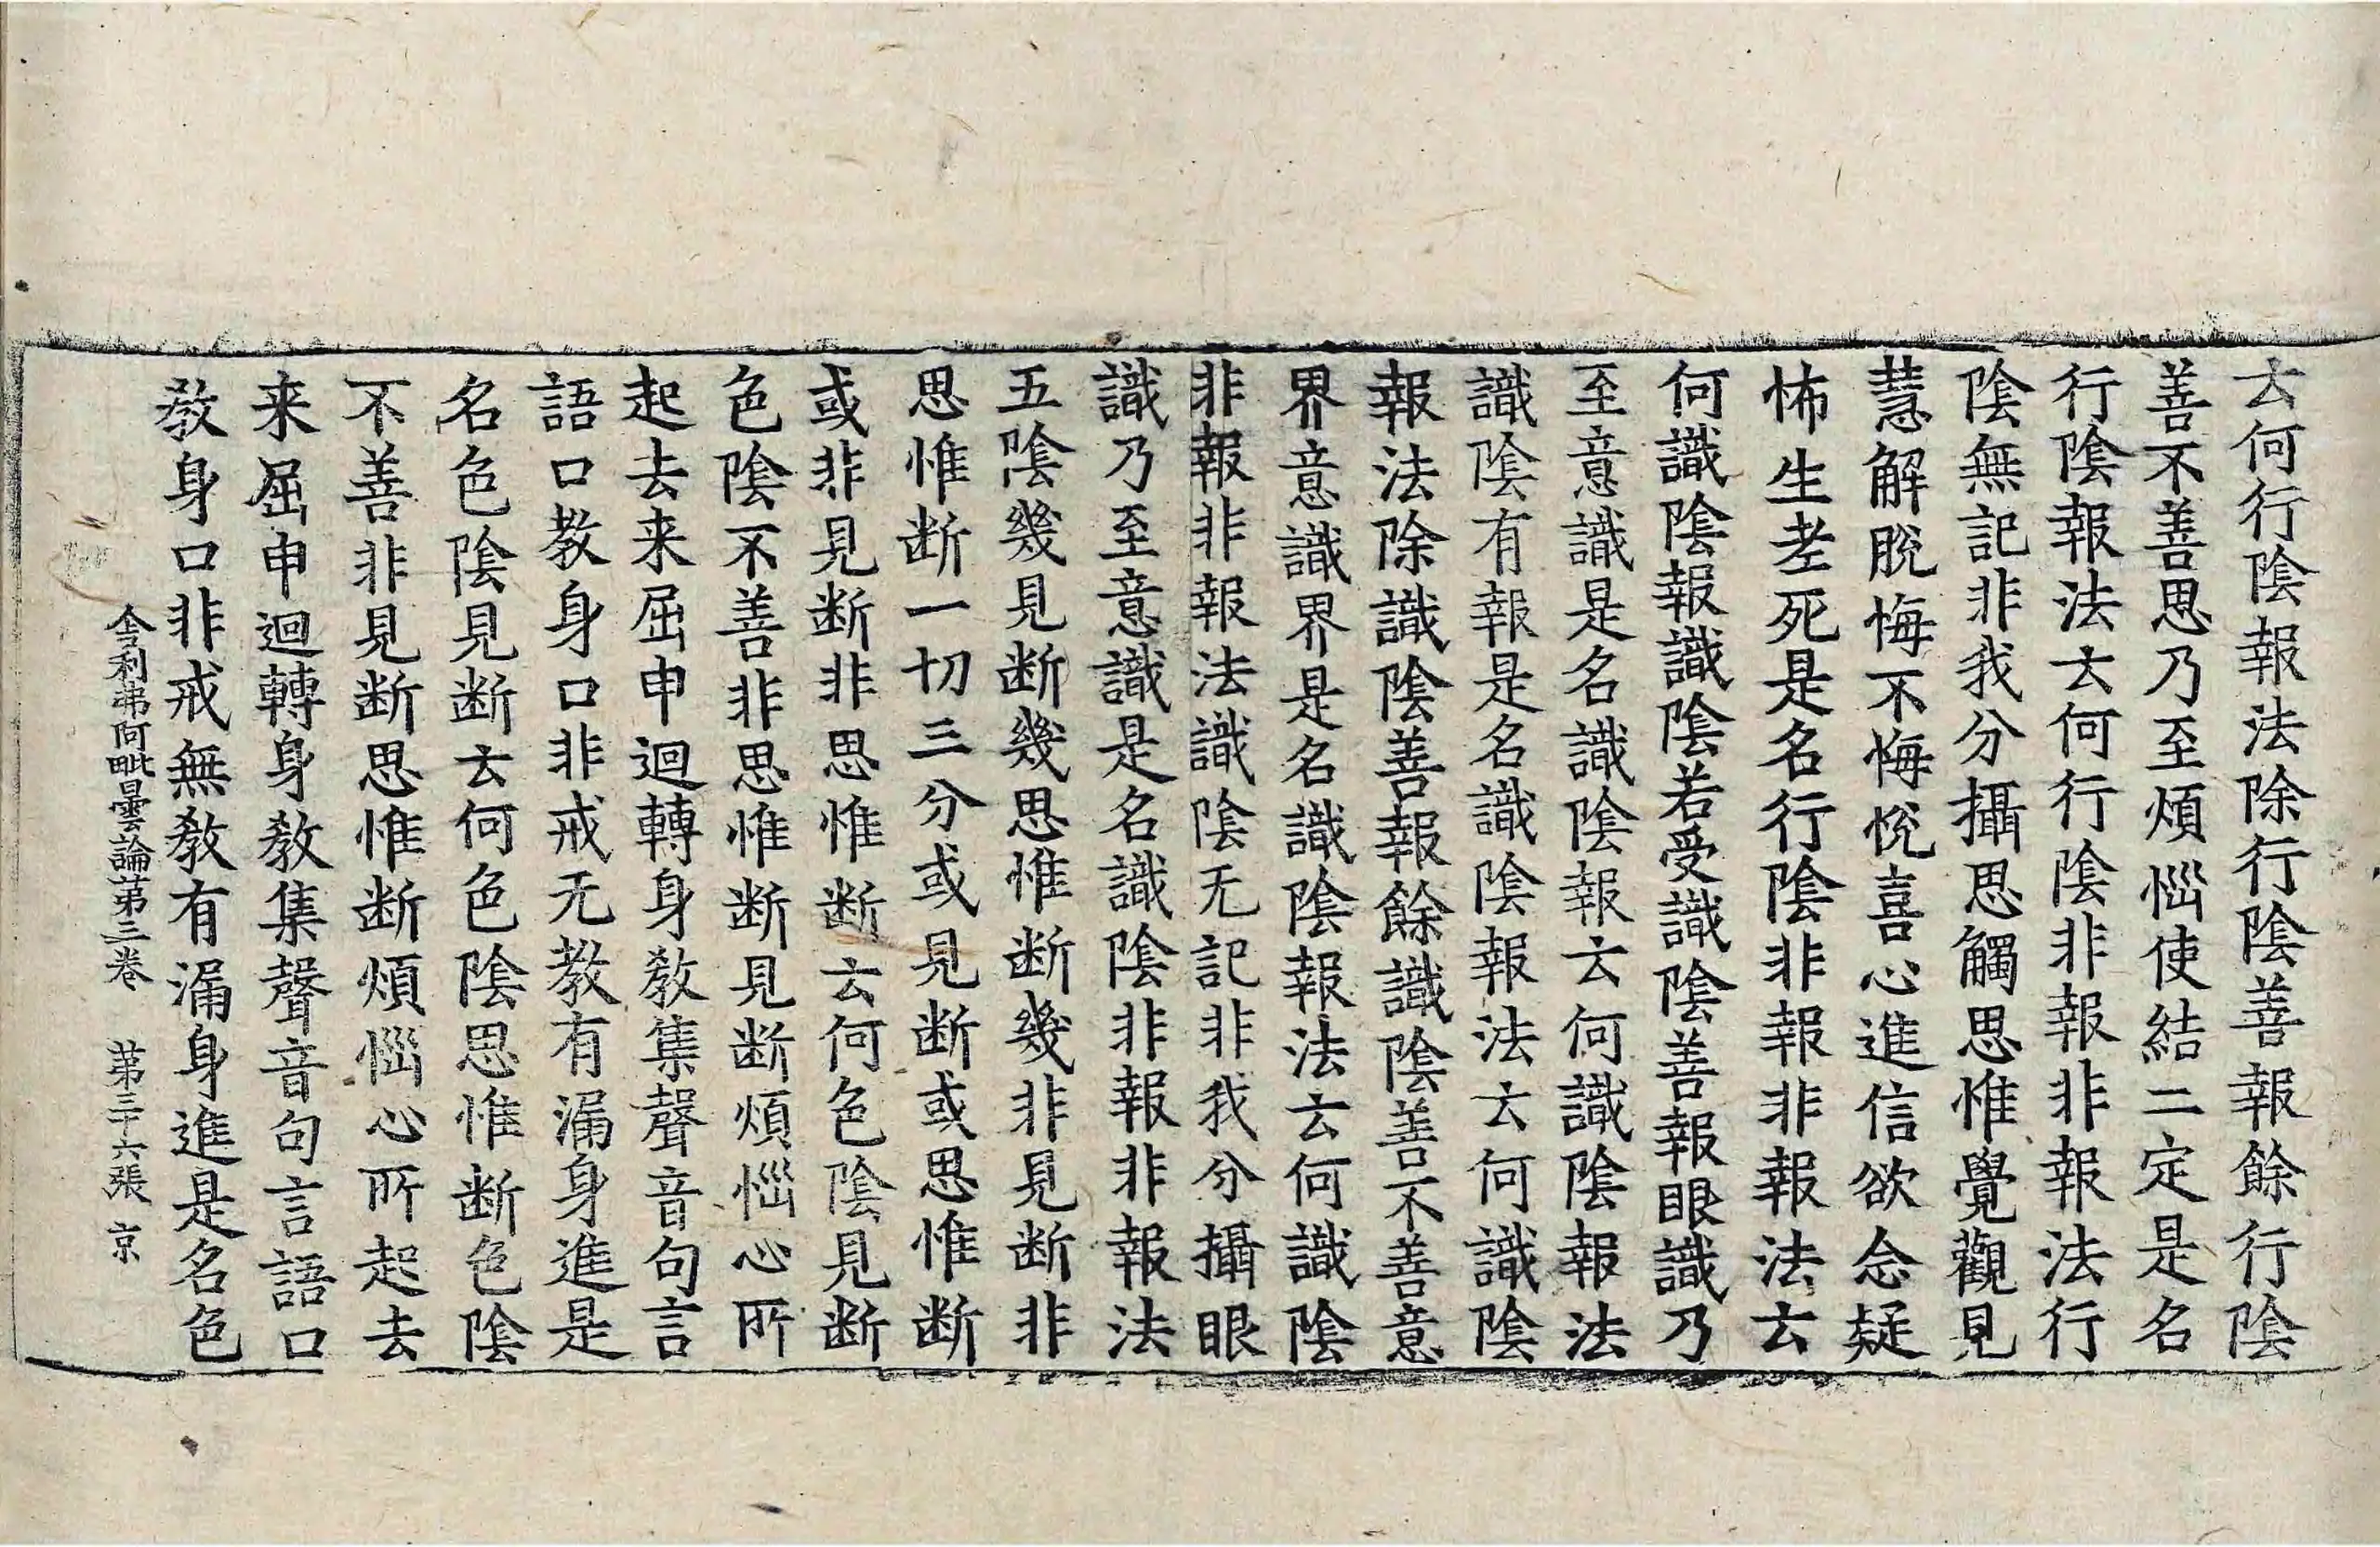 云何行陰報法除行陰善報餘行陰
善不善思乃至煩惱使結二定是名
行陰報法云何行陰非報非報法行
陰無記非我分攝思觸思惟覺觀見
慧解脫悔不悔悅喜心進信欲念疑
怖生老死是名行陰非報非報法云
何識陰報識陰若受識陰善報眼識乃
至意識是名識陰報云何識陰報法
識陰有報是名識陰報法云何識陰
報法除識陰善報餘識陰善不善意
界意識界是名識陰報法云何識陰
非報非報法識陰无記非我分攝眼
識乃至意識是名識陰非報非報法
五陰幾見断幾思惟断幾非見断非
思惟断一切三分或見断或思惟断
或非見断非思惟断云何色陰見断
色陰不善非思惟断見断煩惱心所
起去来屈申迴轉身教集聲音句言
語口教身口非戒无教有漏身進是
名色陰見断云何色陰思惟断色陰
不善非見断思惟断煩惱心所起去
来屈申迴轉身教集聲音句言語口
教身口非戒無教有漏身進是名色
舍利弗阿毗曇論苐三卷 苐三十六張 京